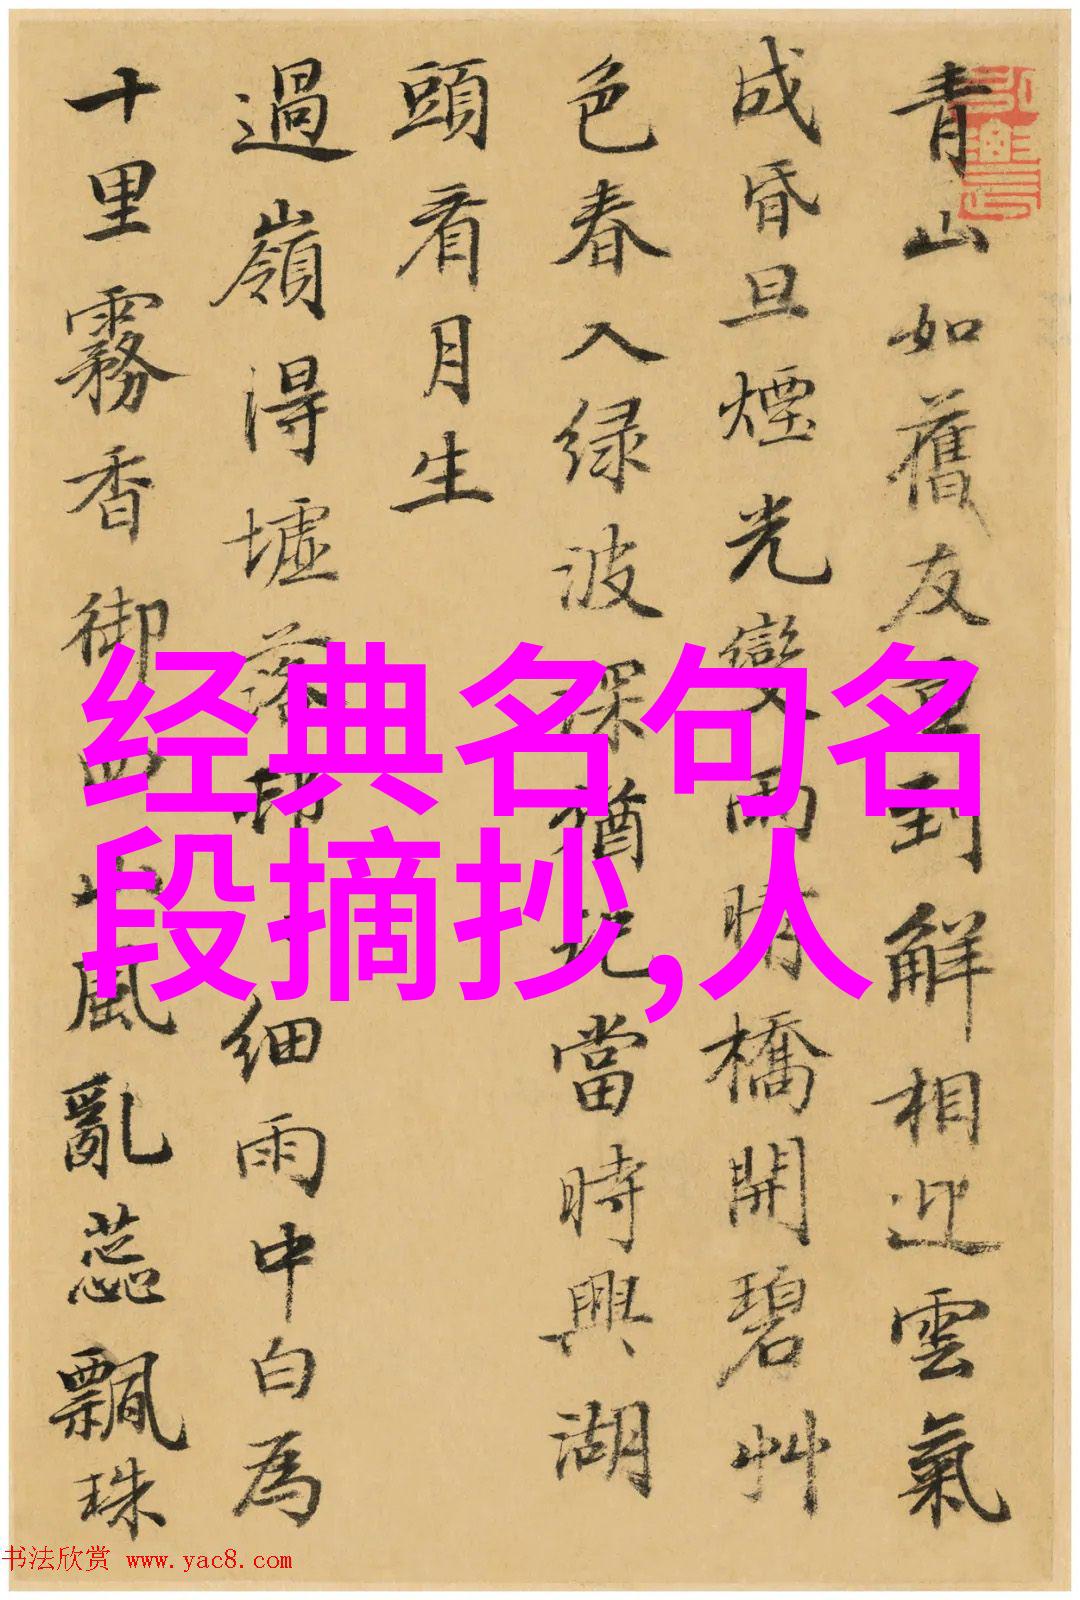 青山如舊友到解相迎雲氣
成昏旦煙光變雨晴橋開碧艸
色春入緑波深猶記當時興湖
頭看月生
過嶺得墟落邨細雨中白為
十里霧香御四山風亂蕊飄珠
经典名句名
段摘抄,人
书法欣赏 www.yac8.com